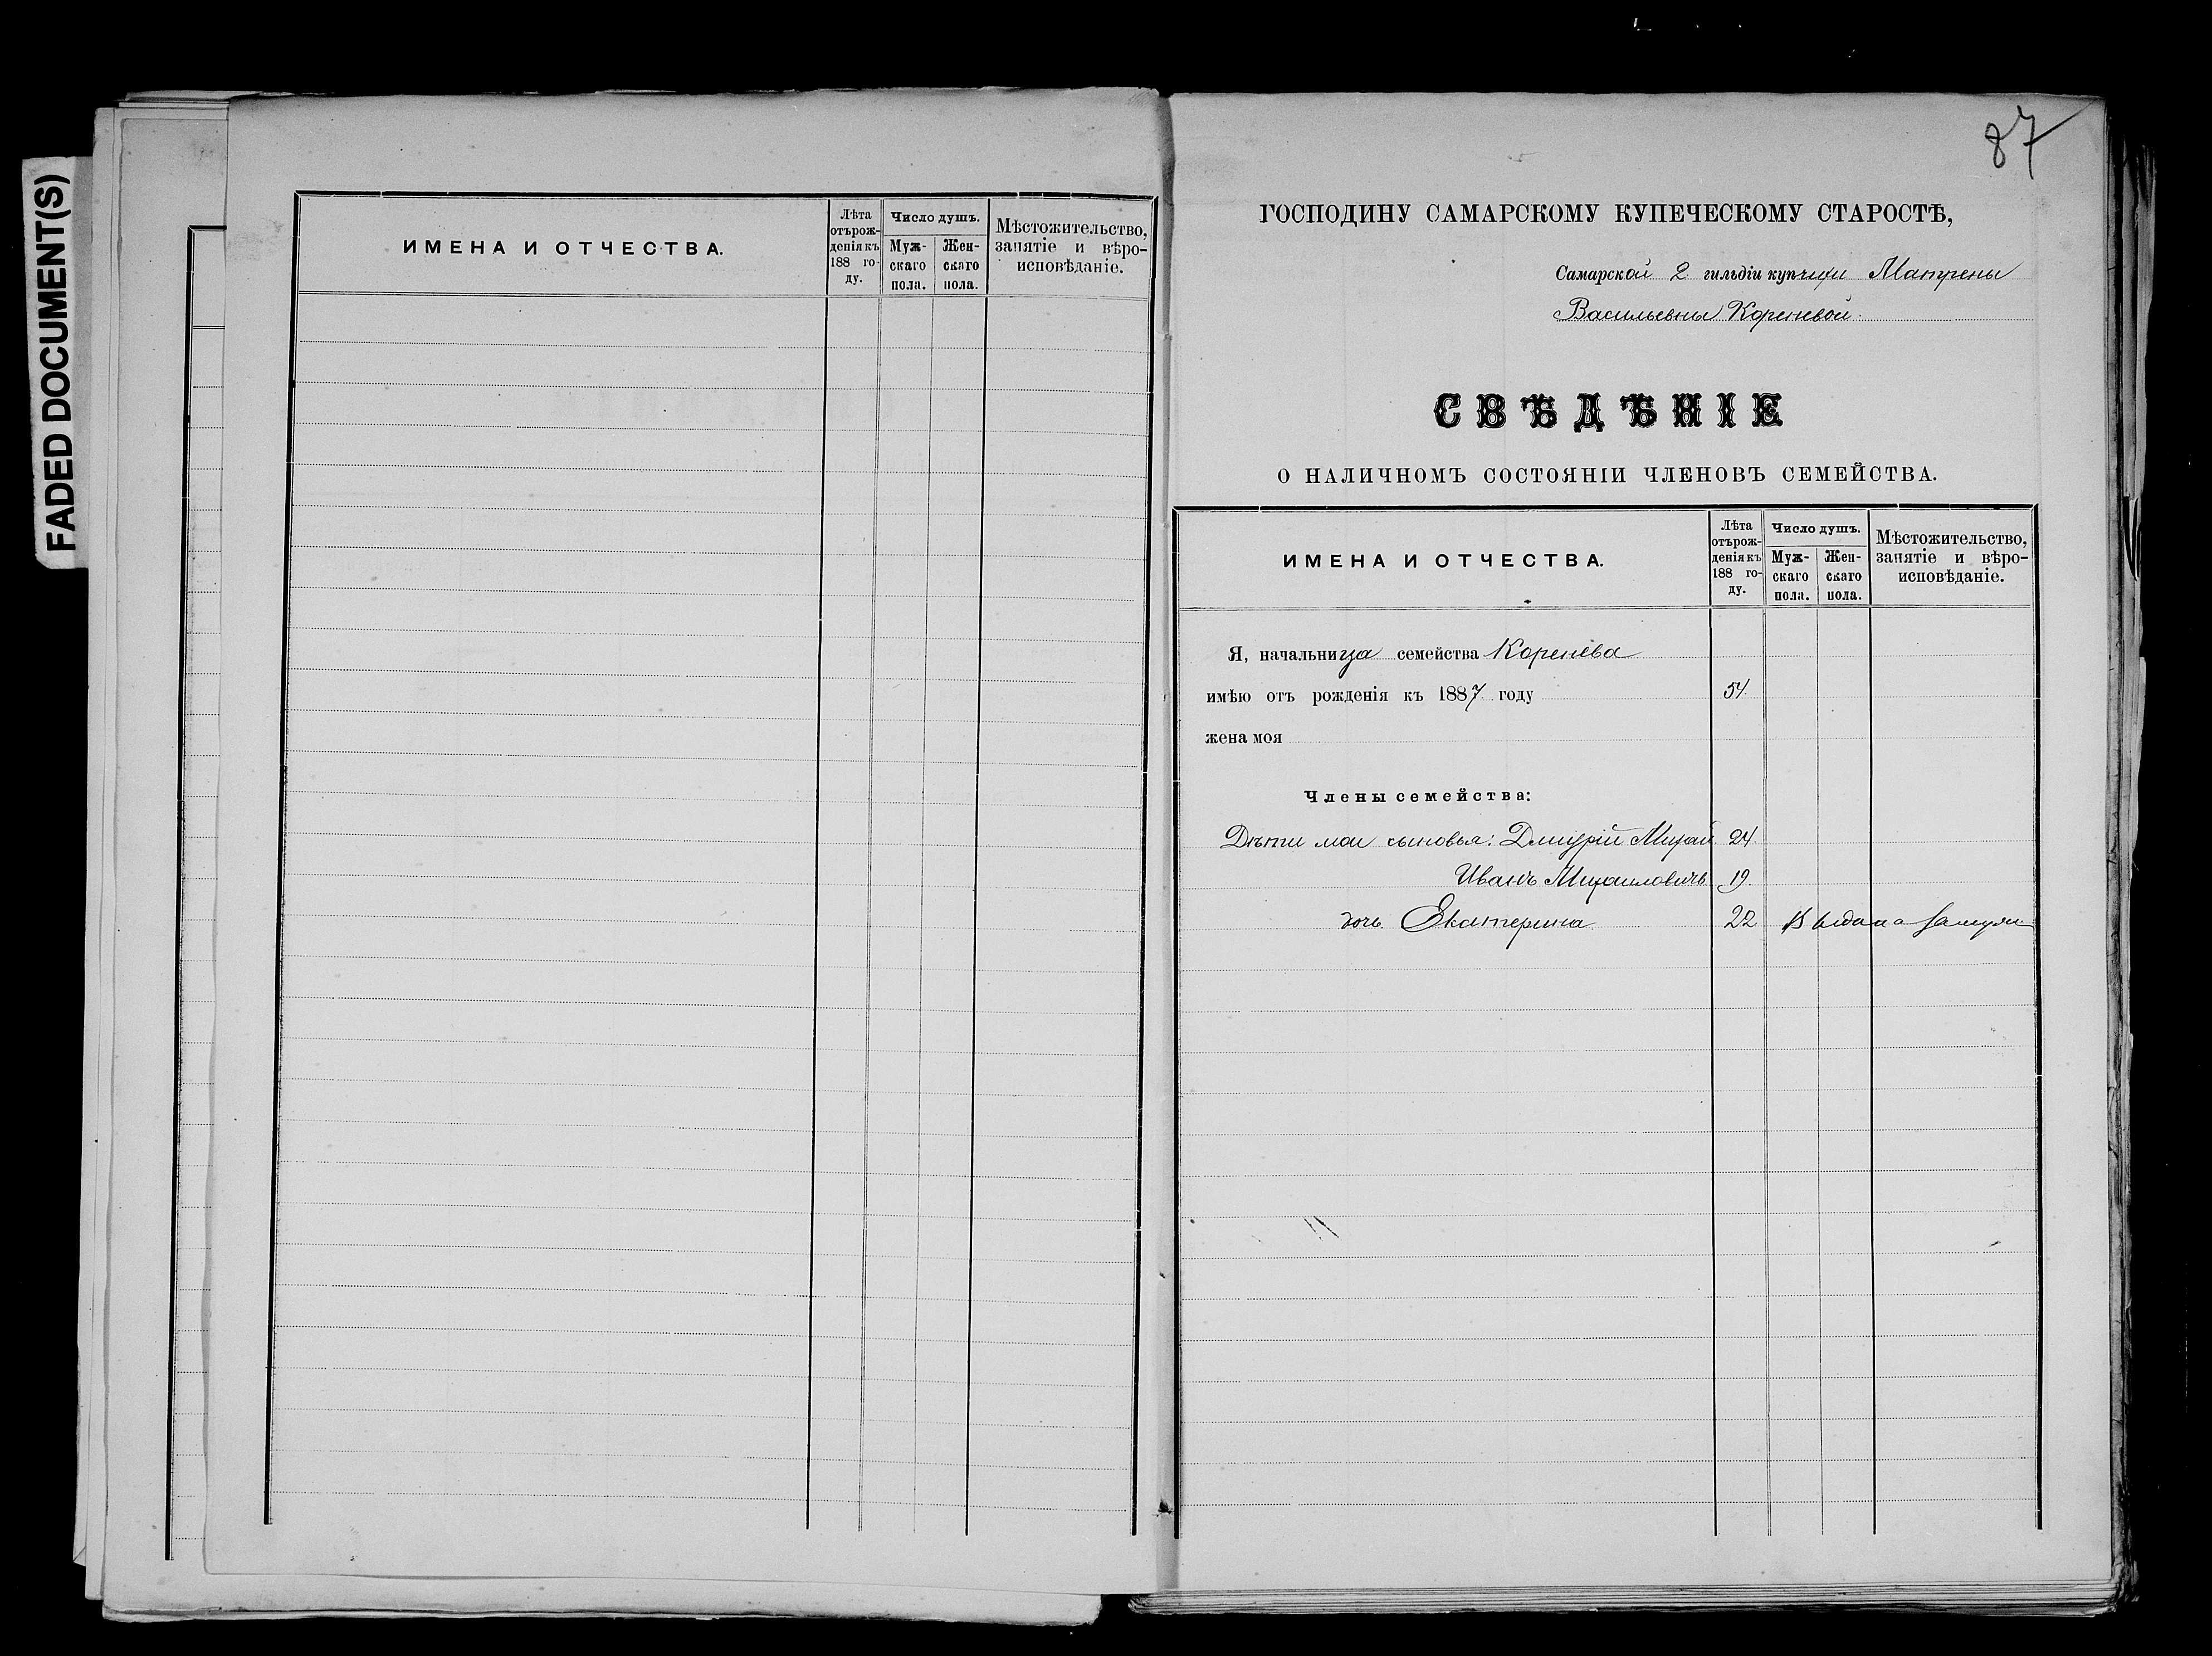 FADED DOCUMENT(S)
ИМЕНА И ОТЧЕСТВА.
Лѣта отърожденія къ 188 году.
Число душъ.
Мужскаго пола.
Женскаго пола.
Мѣстожительство, занятіе и вѣроисповѣданіе.
87
ГОСПОДИНУ САМАРСКОМУ КУПЕЧЕСКОМУ СТАРОСТѢ,
Самарской 2 гильдіи купчихи Матрены
Васильевны Кореневой.
СВѢДѢНІЕ
О НАЛИЧНОМЪ СОСТОЯНІИ ЧЛЕНОВЪ СЕМЕЙСТВА.
ИМЕНА И ОТЧЕСТВА.
Лѣта отърожденія къ 188 году.
Число душъ.
Мужскаго пола.
Женскаго пола.
Мѣстожительство, занятіе и вѣроисповѣданіе.
Я, начальница семейства Коренева
имѣю отъ рожденія къ 1887 году 54
жена моя
Члены семейства:
Дѣти мои сыновья: Дмитрій Михай 24
Иванъ Михаиловичъ 19
дочь Екатерина 22 Выдана замуж